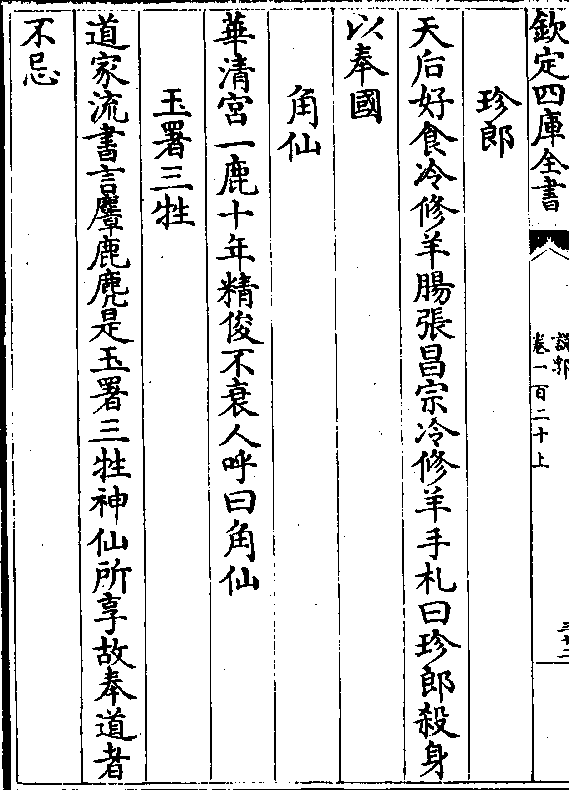 欽定四庫全書
說郛
卷一百二十上
珍郎
天后好食冷修羊腸張昌宗冷修羊手札曰珍郎殺身
以奉國
角仙
華清宮一鹿十年精俊不衰人呼曰角仙
玉署三牲
道家流書言麞鹿麂是玉署三牲神仙所享故奉道者
不忌